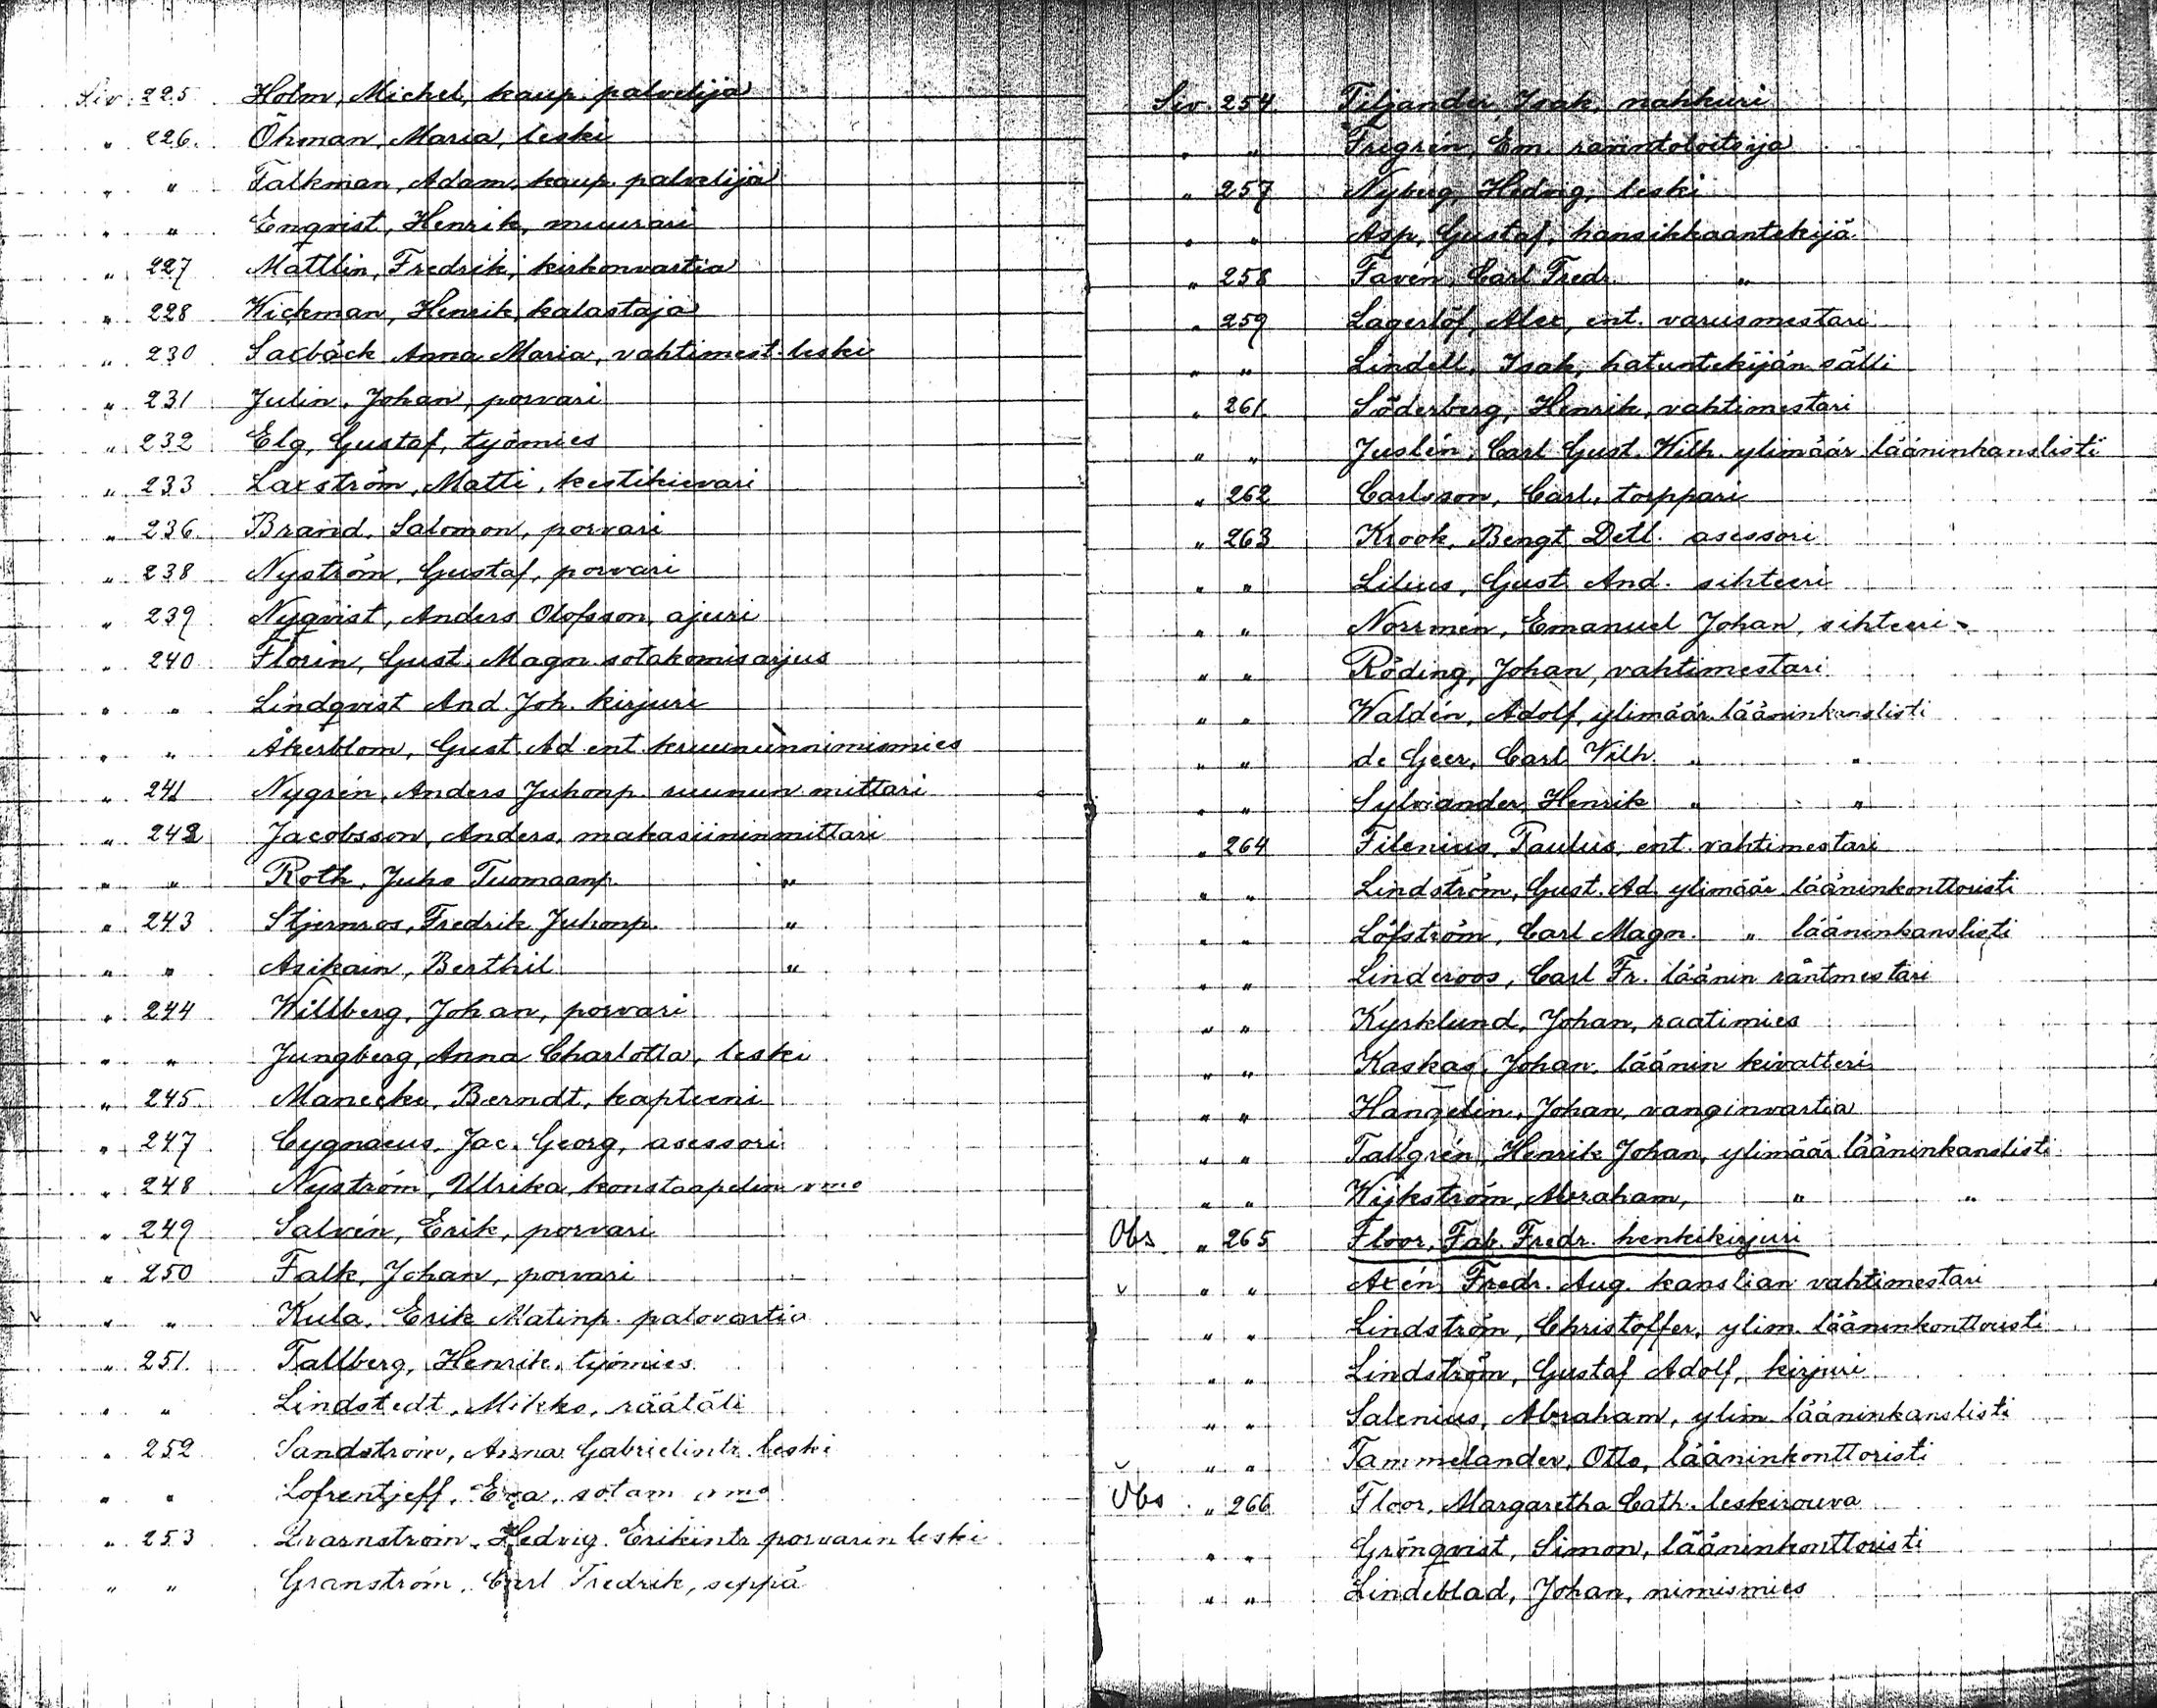 Siv. 225 Holm, Michel, kaup. palvelija
" 226. Öhman, Maria, leski
" " Falkman, Adam, kaup. palvelija
" " Enqvist, Henrik, muurari
" 227 Mattlin, Fredrik, kirkonvartia
" 228 Wickman, Henrik, kalastaja
" 230 Saxbäck Anna Maria, vahtimest. leski
" 231 Julin, Johan, porvari
" 232 Elg, Gustaf, työmies
" 233 Laxström, Matti, kestikievari
" 236. Brand, Salomon, porvari
" 238 Nyström, Gustaf, porvari
" 239 Nyqvist, Anders Olofsson, ajuri
" 240 Florin, Gust. Magn. sotakomisarjus
" " Lindqvist And. Joh. kirjuri
" " Åkerblom, Gust. Ad. ent. kruununnimismies
" 241 Nygrén, Anders Juhonp. ruunun mittari
" 242 Jacobsson, Anders, makasiininmittari
" " Roth, Juho Tuomaanp. "
" 243 Stjernros, Fredrik Juhonp. "
" " Asikain, Berthil "
" 244 Willberg, Johan, porvari
" " Jungberg, Anna Charlotta, leski
" 245 Manecke, Berndt, kapteeni
" 247 Cygnaeus, Jac. Georg, asessori
" 248 Nyström, Ulrika, konstaapelin vmo
" 249 Salvén, Erik, porvari
" 250 Falk, Johan, porvari
v " " Kula, Erik Matinp. palovartia
" 251. Tallberg, Henrik, työmies
" " Lindstedt, Mikko, räätäli
" 252 Sandström, Anna Gabrielintr. leski
" " Lofrentjeff, Eva, sotam. vmo
" 253 Qvarnström, Hedvig Erikintr. porvarin leski
" " Granström, Carl Fredrik, seppä
Siv. 254. Tiljander, Isak, nahkuri
" " Frigrén, Em. ravintoloitsija
" 257 Nyberg, Hedvig, leski
" " Asp, Gustaf, hansikkaantekijä
" 258 Favén, Carl Fredr. "
" 259 Lagerlöf, Alex, ent. varusmestari
" " Lindell, Isak, hatuntekijän sälli
" 261. Söderberg, Henrik, vahtimestari
" " Juslén, Carl Gust. Wilh. ylimäär. lääninkanslisti
" 262 Carlsson, Carl, torppari
" 263 Krook, Bengt Detl. asessori
" " Lilius, Gust. And. sihteeri
" " Norrmén, Emanuel Johan, sihteeri
" " Röding, Johan, vahtimestari
" " Waldén, Adolf, ylimäär. lääninkanslisti
" " de Geer, Carl Wilh. " "
" " Sylvander, Henrik " "
" 264 Filenius, Paulus, ent. vahtimestari
" " Lindström, Gust. Ad. ylimäär. lääninkonttoristi
" " Löfström, Carl Magn. " lääninkanslisti
" " Linderoos, Carl Fr. läänin räntmestari
" " Kyrklund, Johan, raatimies
" " Kaskas, Johan, läänin kivatteri
" " Hangelin, Johan, vanginvartia
" " Tallgrén, Henrik Johan, ylimäär. lääninkanslisti
" " Wijkström, Abraham, " "
Obs " 265 Floor, Fab. Fredr. henkikirjuri
v " " Axén, Fredr. Aug. kanslian vahtimestari
" " Lindström, Christoffer, ylim. lääninkonttoristi
" " Lindström, Gustaf Adolf, kirjuri
" " Salenius, Abraham, ylim. lääninkanslisti
v " " Tammelander, Otto, lääninkonttoristi
Obs " 266 Floor, Margaretha Cath. leskirouva
" " Grönqvist, Simon, lääninkonttoristi
" " Lindeblad, Johan, nimismies